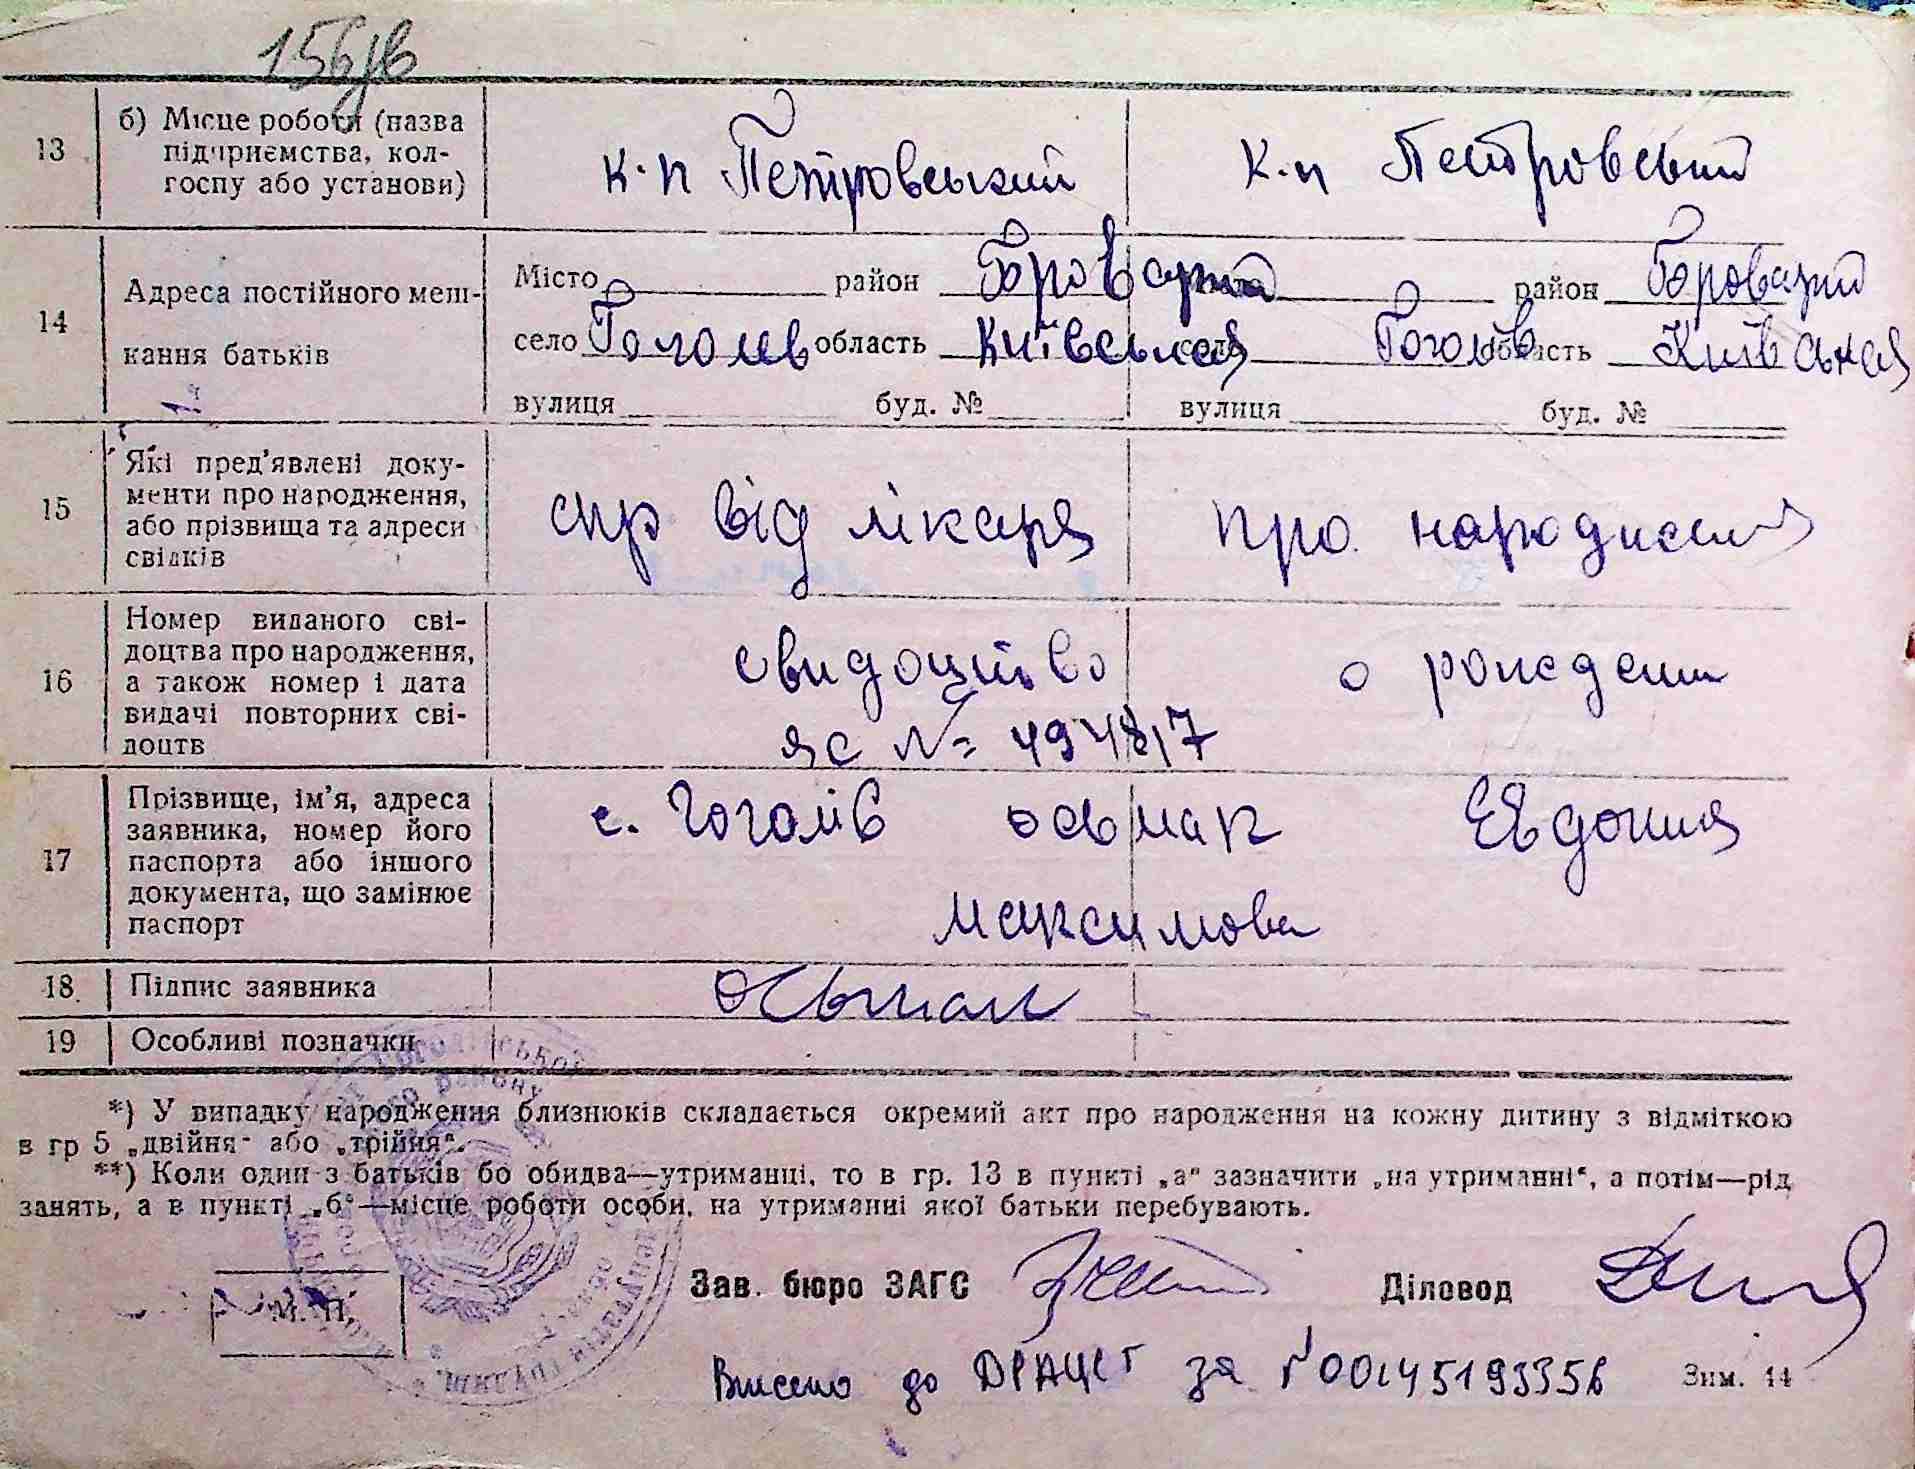 156/в
13 б) Місце роботи (назва підприємства, колгоспу або установи) к.п Петровський к.п Петровський
14 Адреса постійного мешкання батьків
Місто район Броварский місто район Броварский
село Гоголів область Київськая село Гоголів область Київськая
вулиця буд. № вулиця буд. №
15 Які пред'явлені документи про народження, або прізвища та адреси свідків спр від лікаря про народження
16 Номер виданого свідоцтва про народження, а також номер і дата видачі повторних свідоцтв свидоцтво о рождении
яс № 494817
17 Прізвище, ім'я, адреса заявника, номер його паспорта або іншого документа, що замінює паспорт с. Гоголів осьмак Евдокия
Максимова
18 Підпис заявника Осьмак
19 Особливі позначки
*) У випадку народження близнюків складається окремий акт про народження на кожну дитину з відміткою
в гр 5 „двійня" або „трійня".
**) Коли один з батьків бо обидва—утриманці, то в гр. 13 в пункті „а" зазначити „на утриманні", а потім—рід
занять, а в пункті „б"—місце роботи особи, на утриманні якої батьки перебувають.
М. П.
Зав. бюро ЗАГС Діловод
Внесено до ДРАЦСГ за №00145193356 Зим. 14